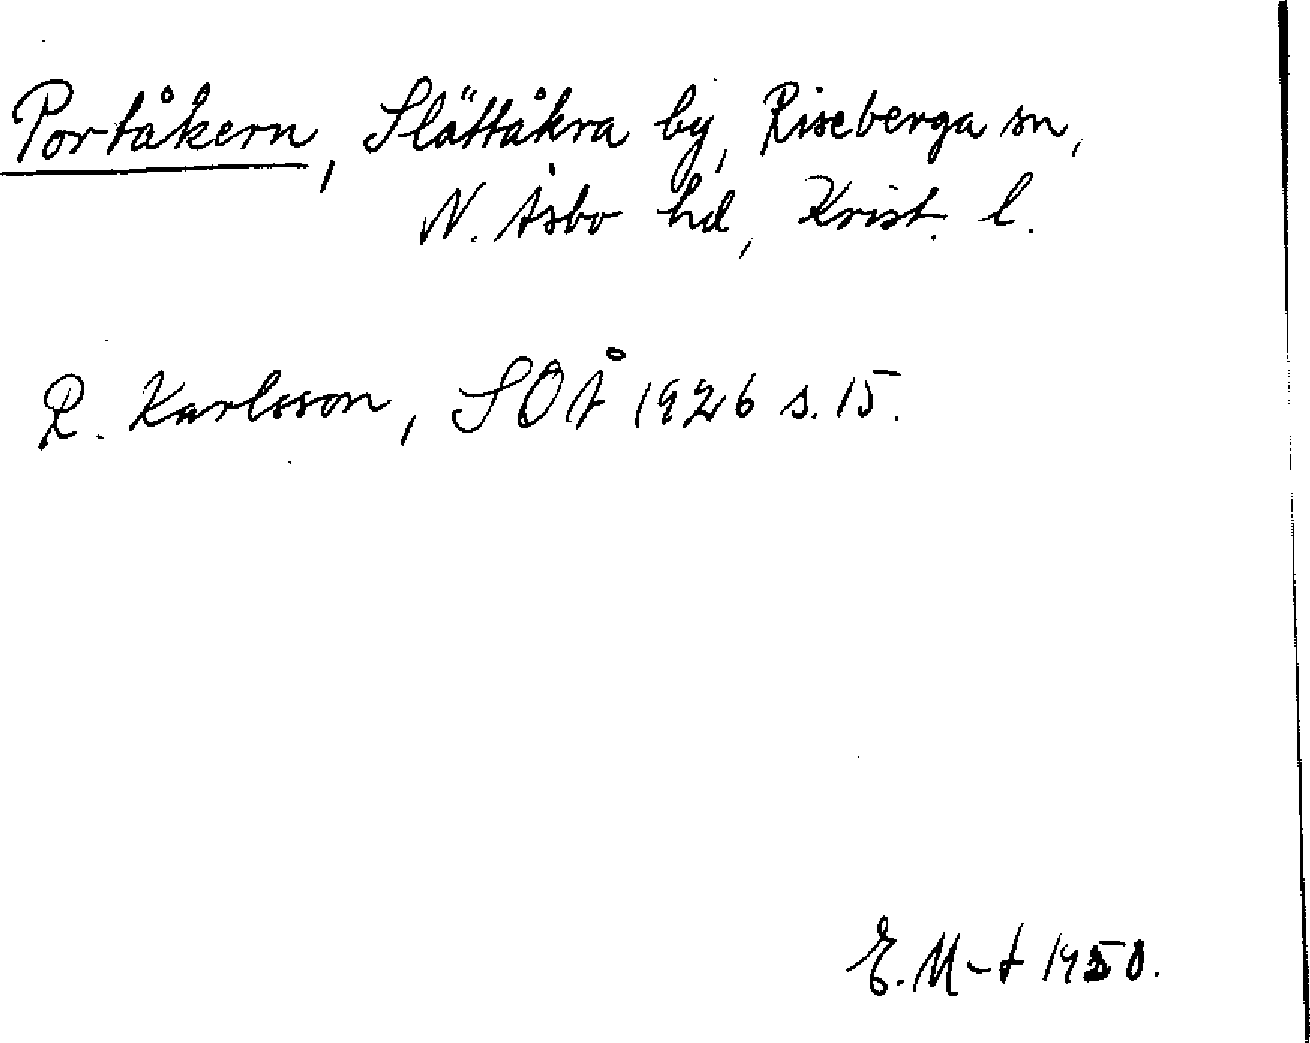 Portåkern, Slättåkra by, Riseberga sn,
N. Åsbo hd, Krist. l.
R. Karlsson, SOÅ 1926 s. 15.
E. M-t 1950.